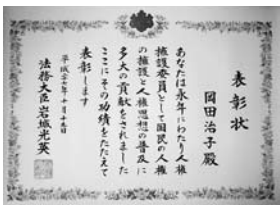 表彰状
岡田治子殿
あなたは永年にわたり人権
擁護委員として国民の人権
の擁護と人権思想の普及に
多大の貢献をされました
ここにその功績をたたえて
表彰します
平成二十七年十月十九日
法務大臣岩城光英